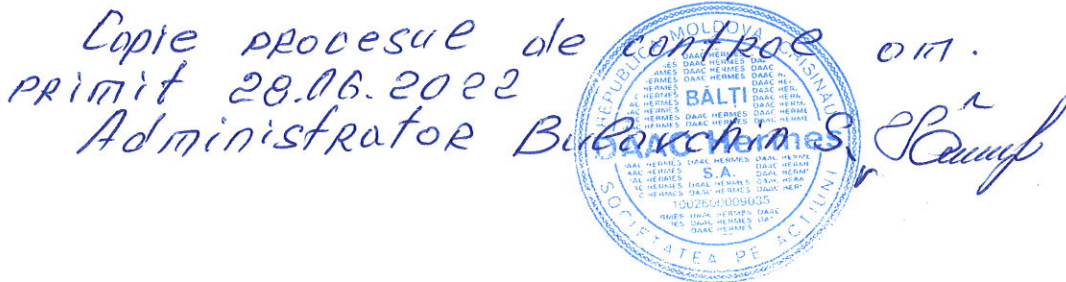 Copie procesul de control am.
primit 28.06.2022
Administrator Bulavchin S.
REPUBLICA MOLDOVA CHIȘINĂU
BĂLȚI
DAAC Hermes
S.A.
1002600009035
SOCIETATEA PE ACȚIUNI